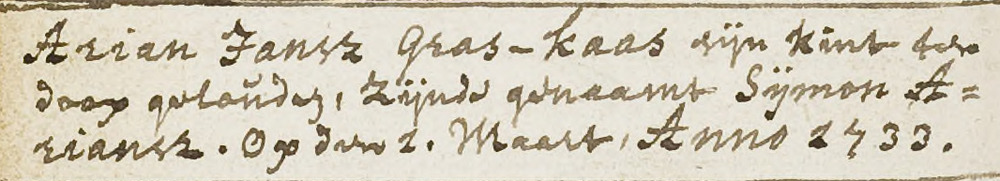 Arian Jansz Gras-kaas sijn kint ten
doop gehouden, Zijnde genaamt Sijmon A=
riansz. Op den 1. Maart, Anno 1733.